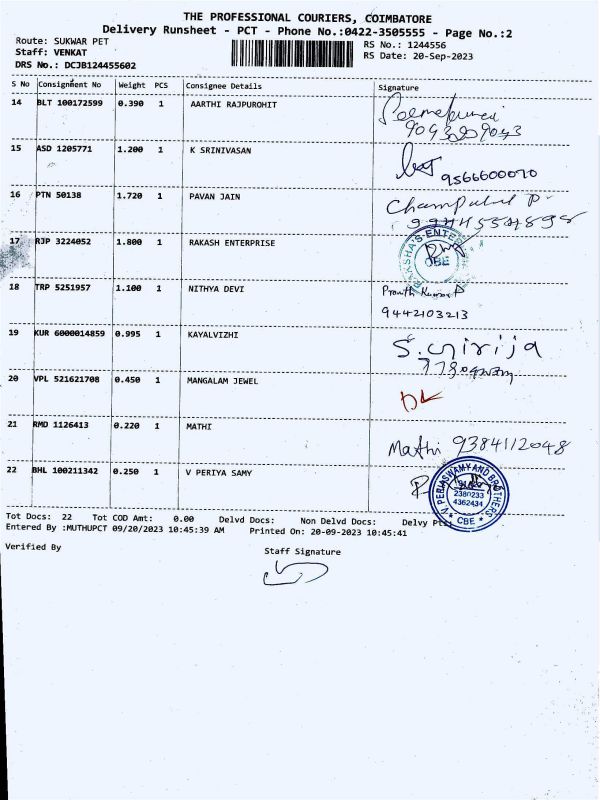 THE PROFESSIONAL COURIERS, COIMBATORE
Delivery Runsheet - PCT - Phone No.:0422-3505555 - Page No.:2
Route: SUKWAR PET
RS No.: 1244556
Staff: VENKAT
RS Date: 20-Sep-2023
DRS No.: DCJB124455602
S No Consignment No Weight PCS Consignee Details Signature
14 BLT 100172599 0.390 1 AARTHI RAJPUROHIT
15 ASD 1205771 1.200 1 K SRINIVASAN
9566600070
16 PTN 50138 1.720 1 PAVAN JAIN
17 RJP 3224052 1.800 1 RAKASH ENTERPRISE
CBE
18 TRP 5251957 1.100 1 NITHYA DEVI
9442103213
19 KUR 6000014859 0.995 1 KAYALVIZHI S.Girija
20 VPL 521621708 0.450 1 MANGALAM JEWEL
21 RMD 1126413 0.220 1 MATHI
Mathi 9384112048
22 BHL 100211342 0.250 1 V PERIYA SAMY
V PERIASWAMY AND BROTHERS
2380233
4362434
* CBE *
Tot Docs: 22 Tot COD Amt: 0.00 Delvd Docs: Non Delvd Docs: Delvy
Entered By :MUTHUPCT 09/20/2023 10:45:39 AM Printed On: 20-09-2023 10:45:41
Verified By
Staff Signature